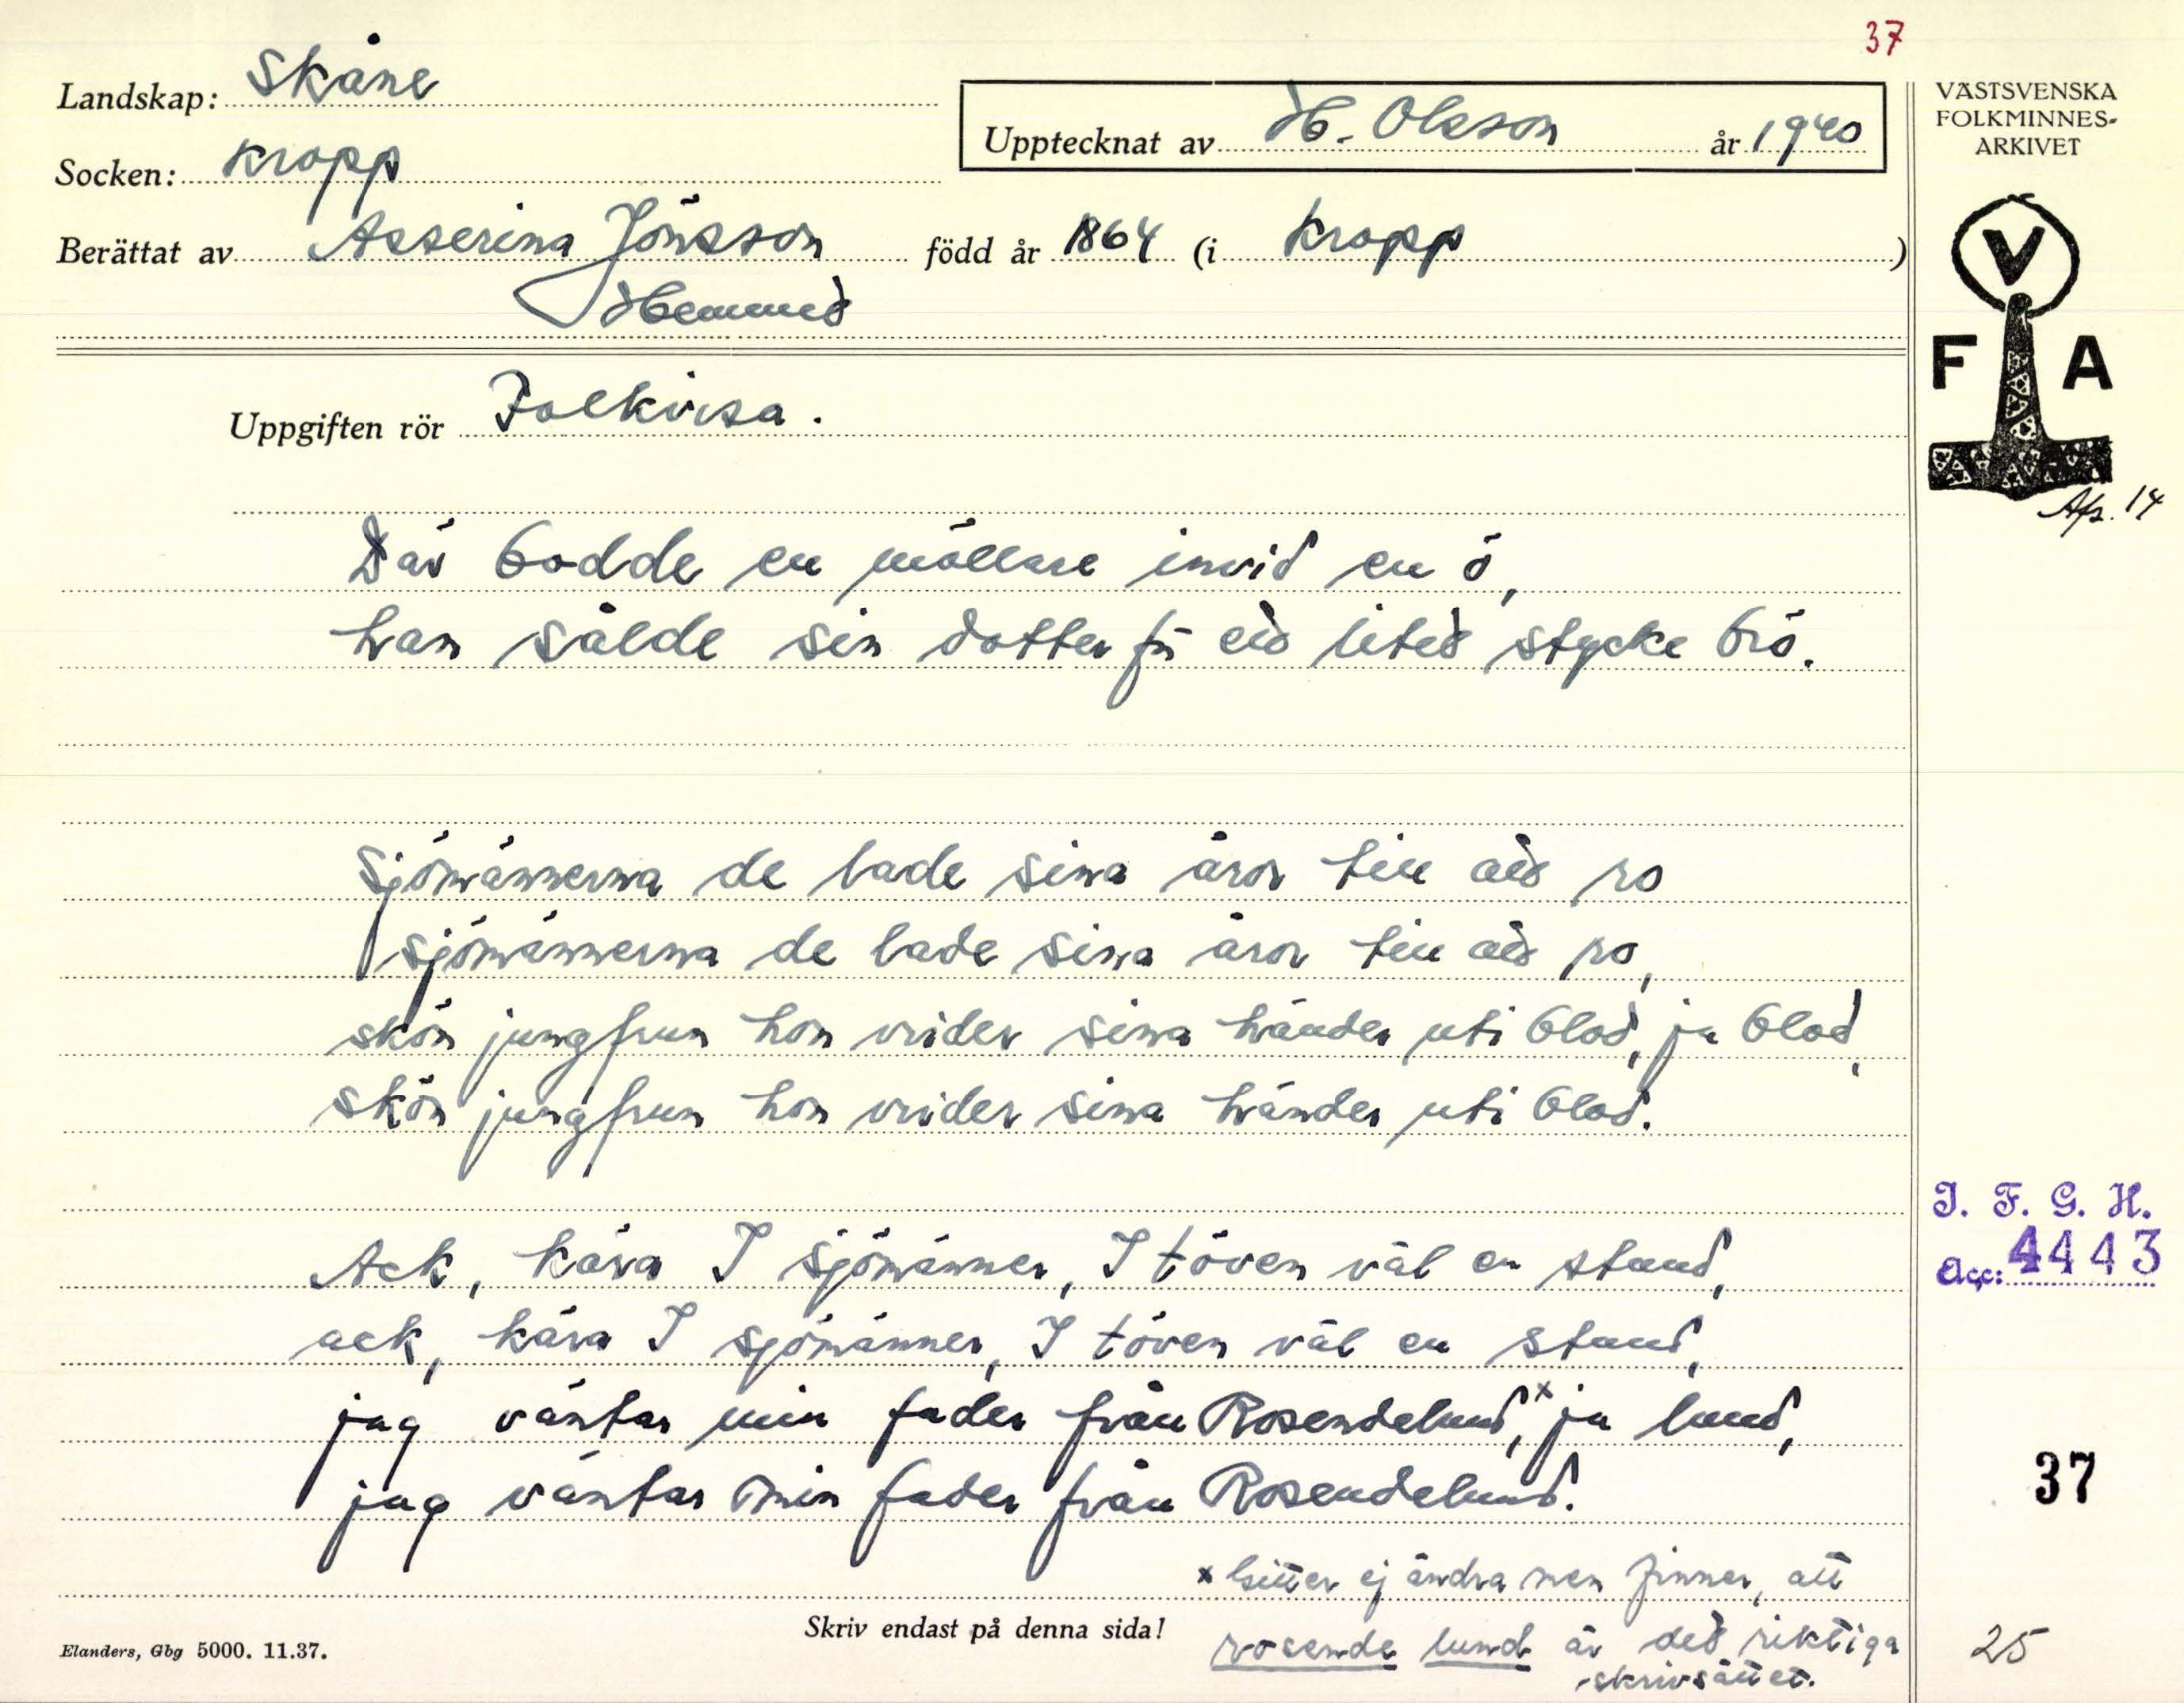 37
Landskap: Skåne
Upptecknat av H. Olsson år 1940
Socken: Kropp
Berättat av Asserina Jönsson född år 1864 (i Kropp)
Uppgiften rör Folkvisa.
Där bodde en möllare invid en ö,
han sålde sin dotter för eid lited stycke brö.
Sjömännerna de lade sina åror till aid ro
sjömännerna de lade sina åror till aid ro,
skön jungfrun hon vrider sina händer uti blod, ja blod,
skön jungfrun hon vrider sina händer uti blod.
Ack, kära I sjömänner, I töven väl en stund,
ack, kära I sjömänner, I töven väl en stund,
jag väntar min fader från Rosendelund,x ja lund,
jag väntar min fader från Rosendelund.
x gitter ej ändra men finner, att
rosende lund är ded riktiga
skrivsättet.
Skriv endast på denna sida!
Elanders, Gbg 5000. 11.37.
VÄSTSVENSKA
FOLKMINNES-
ARKIVET
V
F A
14
I. F. G. H.
Acc: 4443
37
25